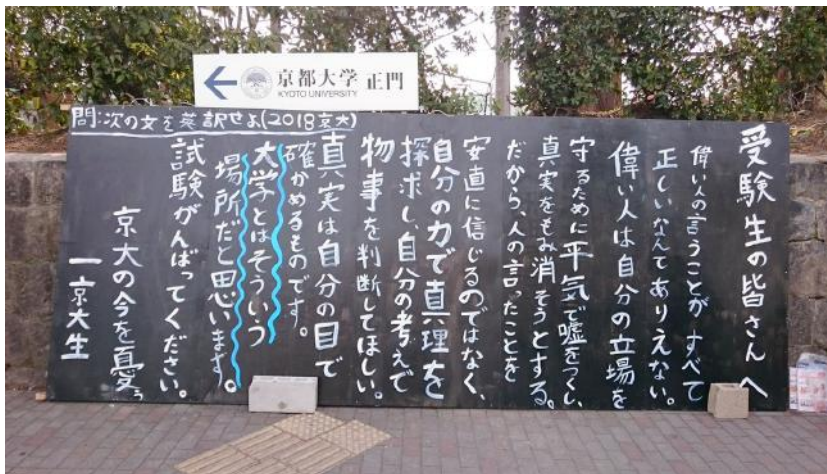 京都大学 正門
KYOTO UNIVERSITY
問:次の文を英訳せよ(2018京大)
受験生の皆さんへ
偉い人の言うことがすべて
正しいなんてありえない。
偉い人は自分の立場を
守るために平気で嘘をつくし、
真実をもみ消そうとする。
だから、人の言ったことを
安直に信じるのではなく、
自分の力で真理を
探求し、自分の考えで
物事を判断してほしい。
真実は自分の目で
確かめるものです。
大学とはそういう
場所だと思います。
試験がんばってください。
京大の今を憂う
一京大生